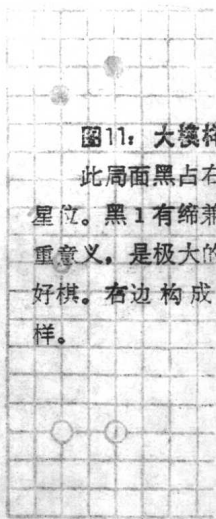 图11：大模样
此局面黑占右
星位。黑1有缔兼
重意义，是极大的
好棋。右边构成
样。